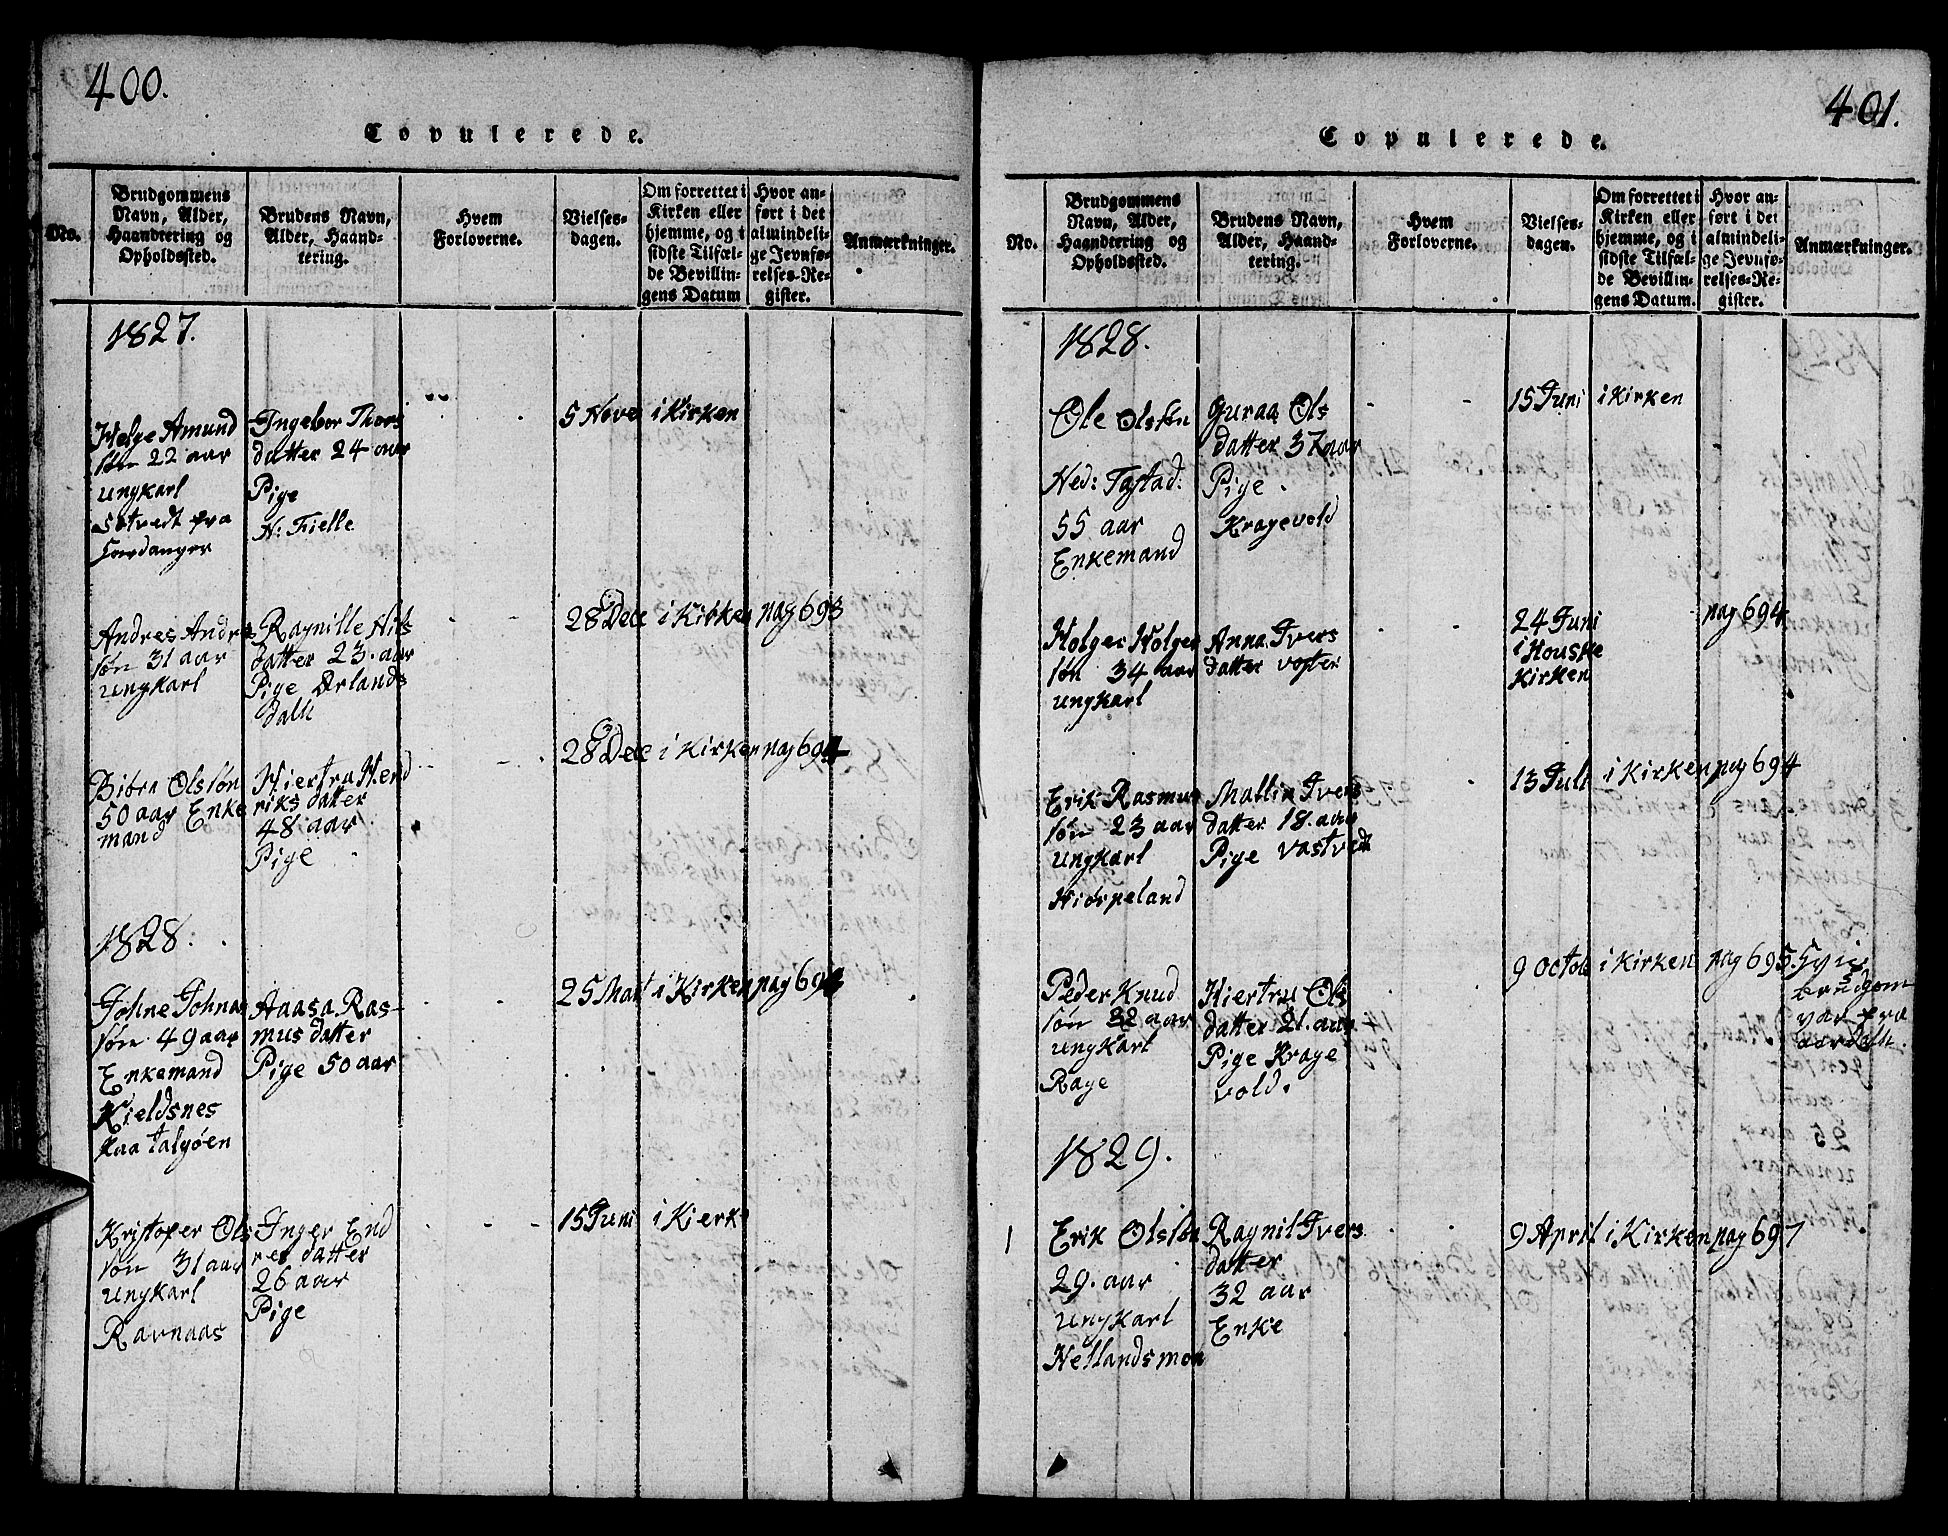 400.
Copulerede.
No.
Brudgommens
Navn, Alder,
Haandtering og
Opholdssted.
Brudens Navn,
Alder, Haand-
tering.
Hvem
Forloverne.
Vielses-
dagen.
Om forrettet i
Kirken eller
hjemme, og i
sidste Tilfæl-
de Bevillin-
gens Datum
Hvor an-
ført i det
almindeli-
ge Jevnfø-
relses-Re-
gister.
Anmærkninger.
1827.
Helge Amund
søn 22 aar
ungkarl
fra
Hardanger
Ingebor Thors
datter 24 aar
Pige
N: Fielle
5 Nove
i Kirken
Andres Andre
søn 31 aar
ungkarl
Ragnille Nils
datter 23. aar
Pige Ørlands
dall
28 Dece
i Kirken
pag 693
Biørn Olsøn
50 aar Enke
mand
Hiertru Hend
riks datter
48 aar
Pige
28 Dece
i Kirken
pag 694
1828.
Johne Johna
søn 49 aar
Enkemand
Kieldsnes
paa talgøen
Aasa Ras-
mus datter
Pige 50 aar
25 Mart
i Kirken
pag 694
Kristofer Ols
søn 31 aar
ungkarl
Ravnaas
Inger End
res datter
26 aar
Pige
15 Juni
i Kierk
401.
Copulerede.
No.
Brudgommens
Navn, Alder,
Haandtering og
Opholdssted.
Brudens Navn,
Alder, Haand-
tering.
Hvem
Forloverne.
Vielses-
dagen.
Om forrettet i
Kirken eller
hjemme, og i
sidste Tilfæl-
de Bevillin-
gens Datum.
Hvor an-
ført i det
almindeli-
ge Jevnfø-
relses-Re-
gister.
Anmærkninger.
1828.
Ole Olsøn
Ned: Tastad:
55 aar
Enkemand
Guraa Ols
datter 37 aar
Pige
Kragevold
15 Juni
i Kirken
Holger Holger
søn 34 aar
ungkarl
Anna Ivers
datter voster
24 Juni
i Houske
Kirken
pag 694
Erik Rasmus
søn 23 aar
ungkarl
Hiørpeland
Mallin Ivers
datter 18. aar
Pige Vastvedt
13 Juli
i Kirken
pag 694
Peder Knud
søn 32 aar
ungkarl
Rage
Hiertru Ols
datter 21. aar
Pige Krage
vold.
9 Octob
i Kirken
pag 695.
brudgom
var fra
aardall.
1829.
1
Erik Olsøn
29. aar
ungkarl
Hetlandsmon
Ragnil Ivers
datter
32 aar
Enke
9 April
i Kirken
pag 697